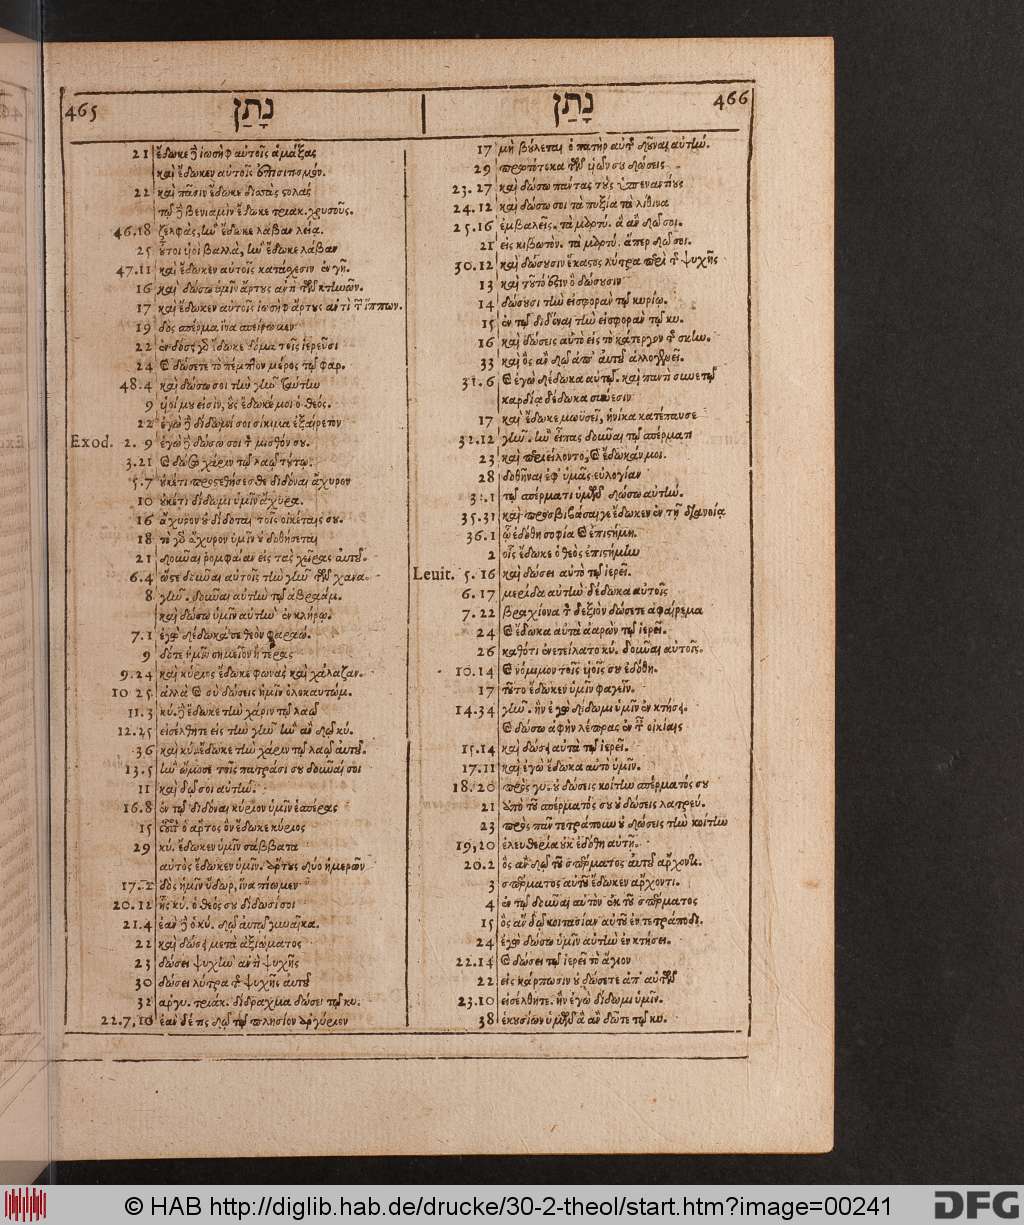 465 נָתַן
21 ἔδωκε δὲ ἰωσὴφ αὐτοῖς ἁμάξας
καὶ ἔδωκεν αὐτοῖς ἐπισιτισμόν.
22 καὶ πᾶσιν ἔδωκε δισσὰς στολάς
τῷ δὲ βενιαμὶν ἔδωκε τριακ. χρυσοῦς.
46.18 ζελφᾶς, ἣν ἔδωκε λάβαν λείᾳ.
25 οὗτοι υἱοὶ βαλλᾶ, ἣν ἔδωκε λάβαν
47.11 καὶ ἔδωκεν αὐτοῖς κατάσχεσιν ἐν γῇ.
16 καὶ δώσω ὑμῖν ἄρτους ἀντὶ τῶν κτηνῶν.
17 καὶ ἔδωκεν αὐτοῖς ἰωσὴφ ἄρτους ἀντὶ τῶν ἵππων.
19 δὸς σπέρμα ἵνα σπείρωμεν
22 ἐν δόσει γὰρ ἔδωκε δόμα τοῖς ἱερεῦσι
24 καὶ δώσετε τὸ πέμπτον μέρος τῷ φαρ.
48.4 καὶ δώσω σοι τὴν γῆν ταύτην
9 υἱοί μου εἰσίν, οὓς ἔδωκέ μοι ὁ θεός.
22 ἐγὼ δὲ δίδωμί σοι σίκιμα ἐξαίρετον
Exod. 2. 9 ἐγὼ δὲ δώσω σοι τὸν μισθόν σου.
3.21 καὶ δώσω χάριν τῷ λαῷ τούτῳ.
5.7 οὐκέτι προστεθήσεσθε διδόναι ἄχυρον
10 οὐκέτι δίδωμι ὑμῖν ἄχυρα.
16 ἄχυρον οὐ δίδοται τοῖς οἰκέταις σου.
18 τὸ γὰρ ἄχυρον ὑμῖν οὐ δοθήσεται
21 δοῦναι ῥομφαίαν εἰς τὰς χεῖρας αὐτοῦ.
6.4 ὥστε δοῦναι αὐτοῖς τὴν γῆν τῶν χανα.
8 γῆν. δοῦναι αὐτὴν τῷ ἀβραάμ.
καὶ δώσω ὑμῖν αὐτὴν ἐν κλήρῳ.
7.1 ἰδοὺ δέδωκά σε θεὸν φαραώ.
9 δότε ἡμῖν σημεῖον ἢ τέρας
9.24 καὶ κύριος ἔδωκε φωνὰς καὶ χάλαζαν.
10 25. ἀλλὰ καὶ σὺ δώσεις ἡμῖν ὁλοκαυτώμ.
11.3 κύ. δὲ ἔδωκε τὴν χάριν τῷ λαῷ
12.25 εἰσέλθητε εἰς τὴν γῆν ἣν ἂν δῷ κύ.
36 καὶ κύ. ἔδωκε τὴν χάριν τῷ λαῷ αὐτοῦ.
13.5 ἣν ὤμοσε τοῖς πατράσι σου δοῦναί σοι
11 καὶ δῷ σοι αὐτήν.
16.8 ἐν τῷ διδόναι κύριον ὑμῖν ἑσπέρας
15 οὗτος ὁ ἄρτος ὃν ἔδωκε κύριος
29 κύ. ἔδωκεν ὑμῖν σάββατα
αὐτὸς ἔδωκεν ὑμῖν. ἄρτους δύο ἡμερῶν
17. 2 δὸς ἡμῖν ὕδωρ, ἵνα πίωμεν
20.12 ἧς κύ. ὁ θεός σου δίδωσί σοι
21.4 ἐὰν δὲ ὁ κύ. δῷ αὐτῷ γυναῖκα.
22 καὶ δώσει μετὰ ἀξιώματος
23 δώσει ψυχὴν ἀντὶ ψυχῆς
30 δώσει λύτρα τῆς ψυχῆς αὐτοῦ
32 ἀργυ. τριάκ. δίδραχμα δώσει τῷ κυ.
22.7,10 ἐὰν δέ τις δῷ τῷ πλησίον ἀργύριον
נָתַן 466
17 μὴ βούλεται ὁ πατὴρ αὐτῆς δοῦναι αὐτήν.
29 πρωτότοκα τῶν υἱῶν σου δώσεις
23.27 καὶ δώσω πάντας τοὺς ὑπεναντίους
24.12 καὶ δώσω σοι τὰ πυξία τὰ λίθινα
25.16 ἐμβαλεῖς. τὰ μαρτύ. ἃ ἂν δῶ σοι.
21 εἰς κιβωτόν. τὰ μαρτύ. ἅπερ δῶ σοι.
30.12 καὶ δώσουσιν ἕκαστος λύτρα περὶ τῆς ψυχῆς
13 καὶ τοῦτό ἐστιν ὃ δώσουσιν
14 δώσουσι τὴν εἰσφορὰν τῷ κυρίῳ.
15 ἐν τῷ διδόναι τὴν εἰσφορὰν τῷ κυ.
16 καὶ δώσεις αὐτὸ εἰς τὸ κάτεργον τῆς σκην.
33 καὶ ὃς ἂν δῷ ἀπ' αὐτοῦ ἀλλογενεῖ.
31.6 καὶ ἐγὼ δέδωκα αὐτῷ. καὶ παντὶ συνετῷ
καρδίᾳ δέδωκα σύνεσιν
17 καὶ ἔδωκε μωϋσεῖ, ἡνίκα κατέπαυσε
32.12 γῆν. ἣν εἶπας δοῦναι τῷ σπέρματι
23 καὶ περιείλοντο, καὶ ἔδωκάν μοι.
28 δοθῆναι ἐφ' ὑμᾶς εὐλογίαν
33.1 τῷ σπέρματι ὑμῶν δώσω αὐτήν.
35.31 καὶ προσβιβάσαι γε ἔδωκεν ἐν τῇ διανοίᾳ
36.1 ᾧ ἐδόθη σοφία καὶ ἐπιστήμη.
2 οἷς ἔδωκε ὁ θεὸς ἐπιστήμην
Leuit. 5. 16 καὶ δώσει αὐτὸ τῷ ἱερεῖ.
6.17 μερίδα αὐτὴν δέδωκα αὐτοῖς
7.22 βραχίονα τὸν δεξιὸν δώσετε ἀφαίρεμα
24 καὶ ἔδωκα αὐτὰ ἀαρὼν τῷ ἱερεῖ.
26 καθότι ἐνετείλατο κύ. δοῦναι αὐτοῖς.
10.14 καὶ νόμιμον τοῖς υἱοῖς σου ἐδόθη.
17 τοῦτο ἔδωκεν ὑμῖν φαγεῖν.
14.34 γῆν. ἣν ἐγὼ δίδωμι ὑμῖν ἐν κτήσει.
καὶ δώσω ἁφὴν λέπρας ἐν ταῖς οἰκίαις
15.14 καὶ δώσει αὐτὰ τῷ ἱερεῖ.
17.11 καὶ ἐγὼ ἔδωκα αὐτὸ ὑμῖν.
18.20 πρὸς γυ. οὐ δώσεις κοίτην σπέρματός σου
21 ἀπὸ τοῦ σπέρματός σου οὐ δώσεις λατρεύ.
23 πρὸς πᾶν τετράπουν οὐ δώσεις τὴν κοίτην
19,20 ἐλευθερία οὐκ ἐδόθη αὐτῇ.
20.2 ὃς ἂν δῷ τοῦ σπέρματος αὐτοῦ ἄρχοντι.
3 σπέρματος αὐτοῦ ἔδωκεν ἄρχοντι.
4 ἐν τῷ δοῦναι αὐτὸν ἐκ τοῦ σπέρματος
15 ὃς ἂν δῷ κοιτασίαν αὐτοῦ ἐν τετράποδι.
24 ἐγὼ δώσω ὑμῖν αὐτὴν ἐν κτήσει.
22.14 καὶ δώσει τῷ ἱερεῖ τὸ ἅγιον
22 εἰς κάρπωσιν οὐ δώσετε ἀπ' αὐτῶν
23.10 εἰσέλθητε. ἣν ἐγὼ δίδωμι ὑμῖν.
38 ἑκουσίων ὑμῶν ἃ ἂν δῶτε τῷ κυ.
© HAB http://diglib.hab.de/drucke/30-2-theol/start.htm?image=00241
DFG